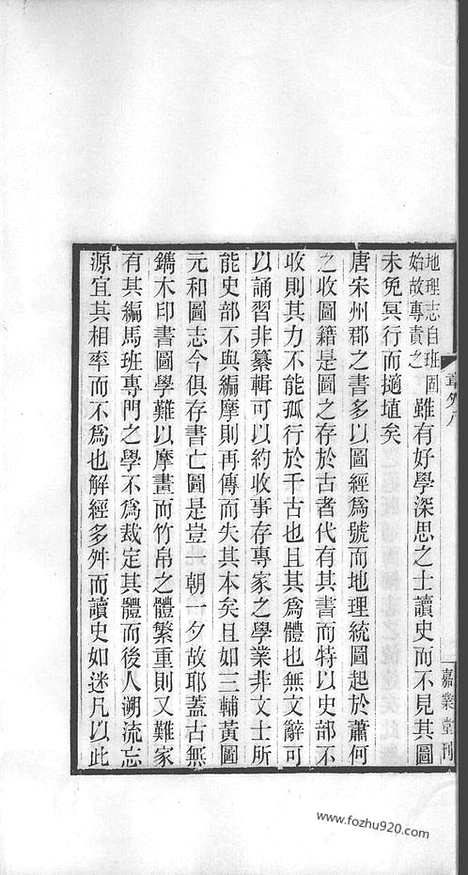 章外八
嘉業堂刊
地理志自班固
始故專責之
雖有好學深思之士讀史而不見其圖
未免冥行而擿埴矣
唐宋州郡之書多以圖經爲號而地理統圖起於蕭何
之收圖籍是圖之存於古者代有其書而特以史部不
收則其力不能孤行於千古也且其爲體也無文辭可
以誦習非纂輯可以約收事存專家之學業非文士所
能史部不與編摩則再傳而失其本矣且如三輔黃圖
元和圖志今俱存書亡圖是豈 朝一夕故耶蓋古無
鐫木印書圖學難以摩畫而竹帛之體繁重則又難家
有其編馬班專門之學不爲裁定其體而後人溯流忘
源宜其相率而不爲也解經多舛而讀史如迷凡以此
www.fozhu920.com